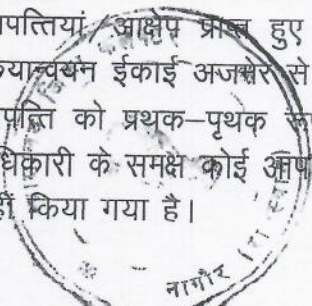 पत्तियां/आक्षेप प्राप्त हुए
यान्वयन ईकाई अजमेर से
पत्ति को प्रथक–पृथक रूप
धिकारी के समक्ष कोई आप
हीं किया गया है।
नागौर